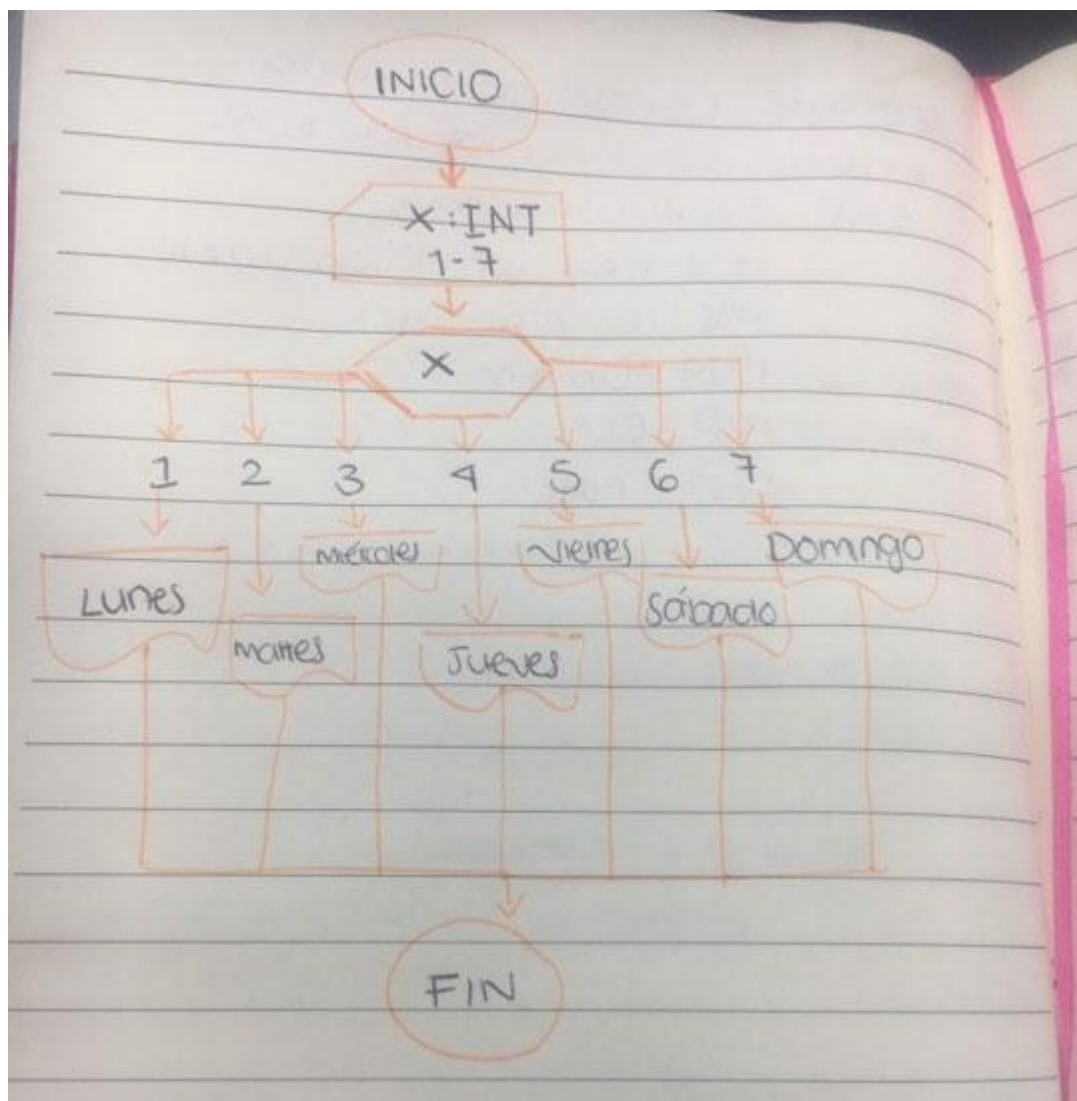 INICIO
X:INT
1-7
X
1 2 3 4 5 6 7
Lunes
Martes
Miércoles
Jueves
Viernes
Sábado
Domingo
FIN